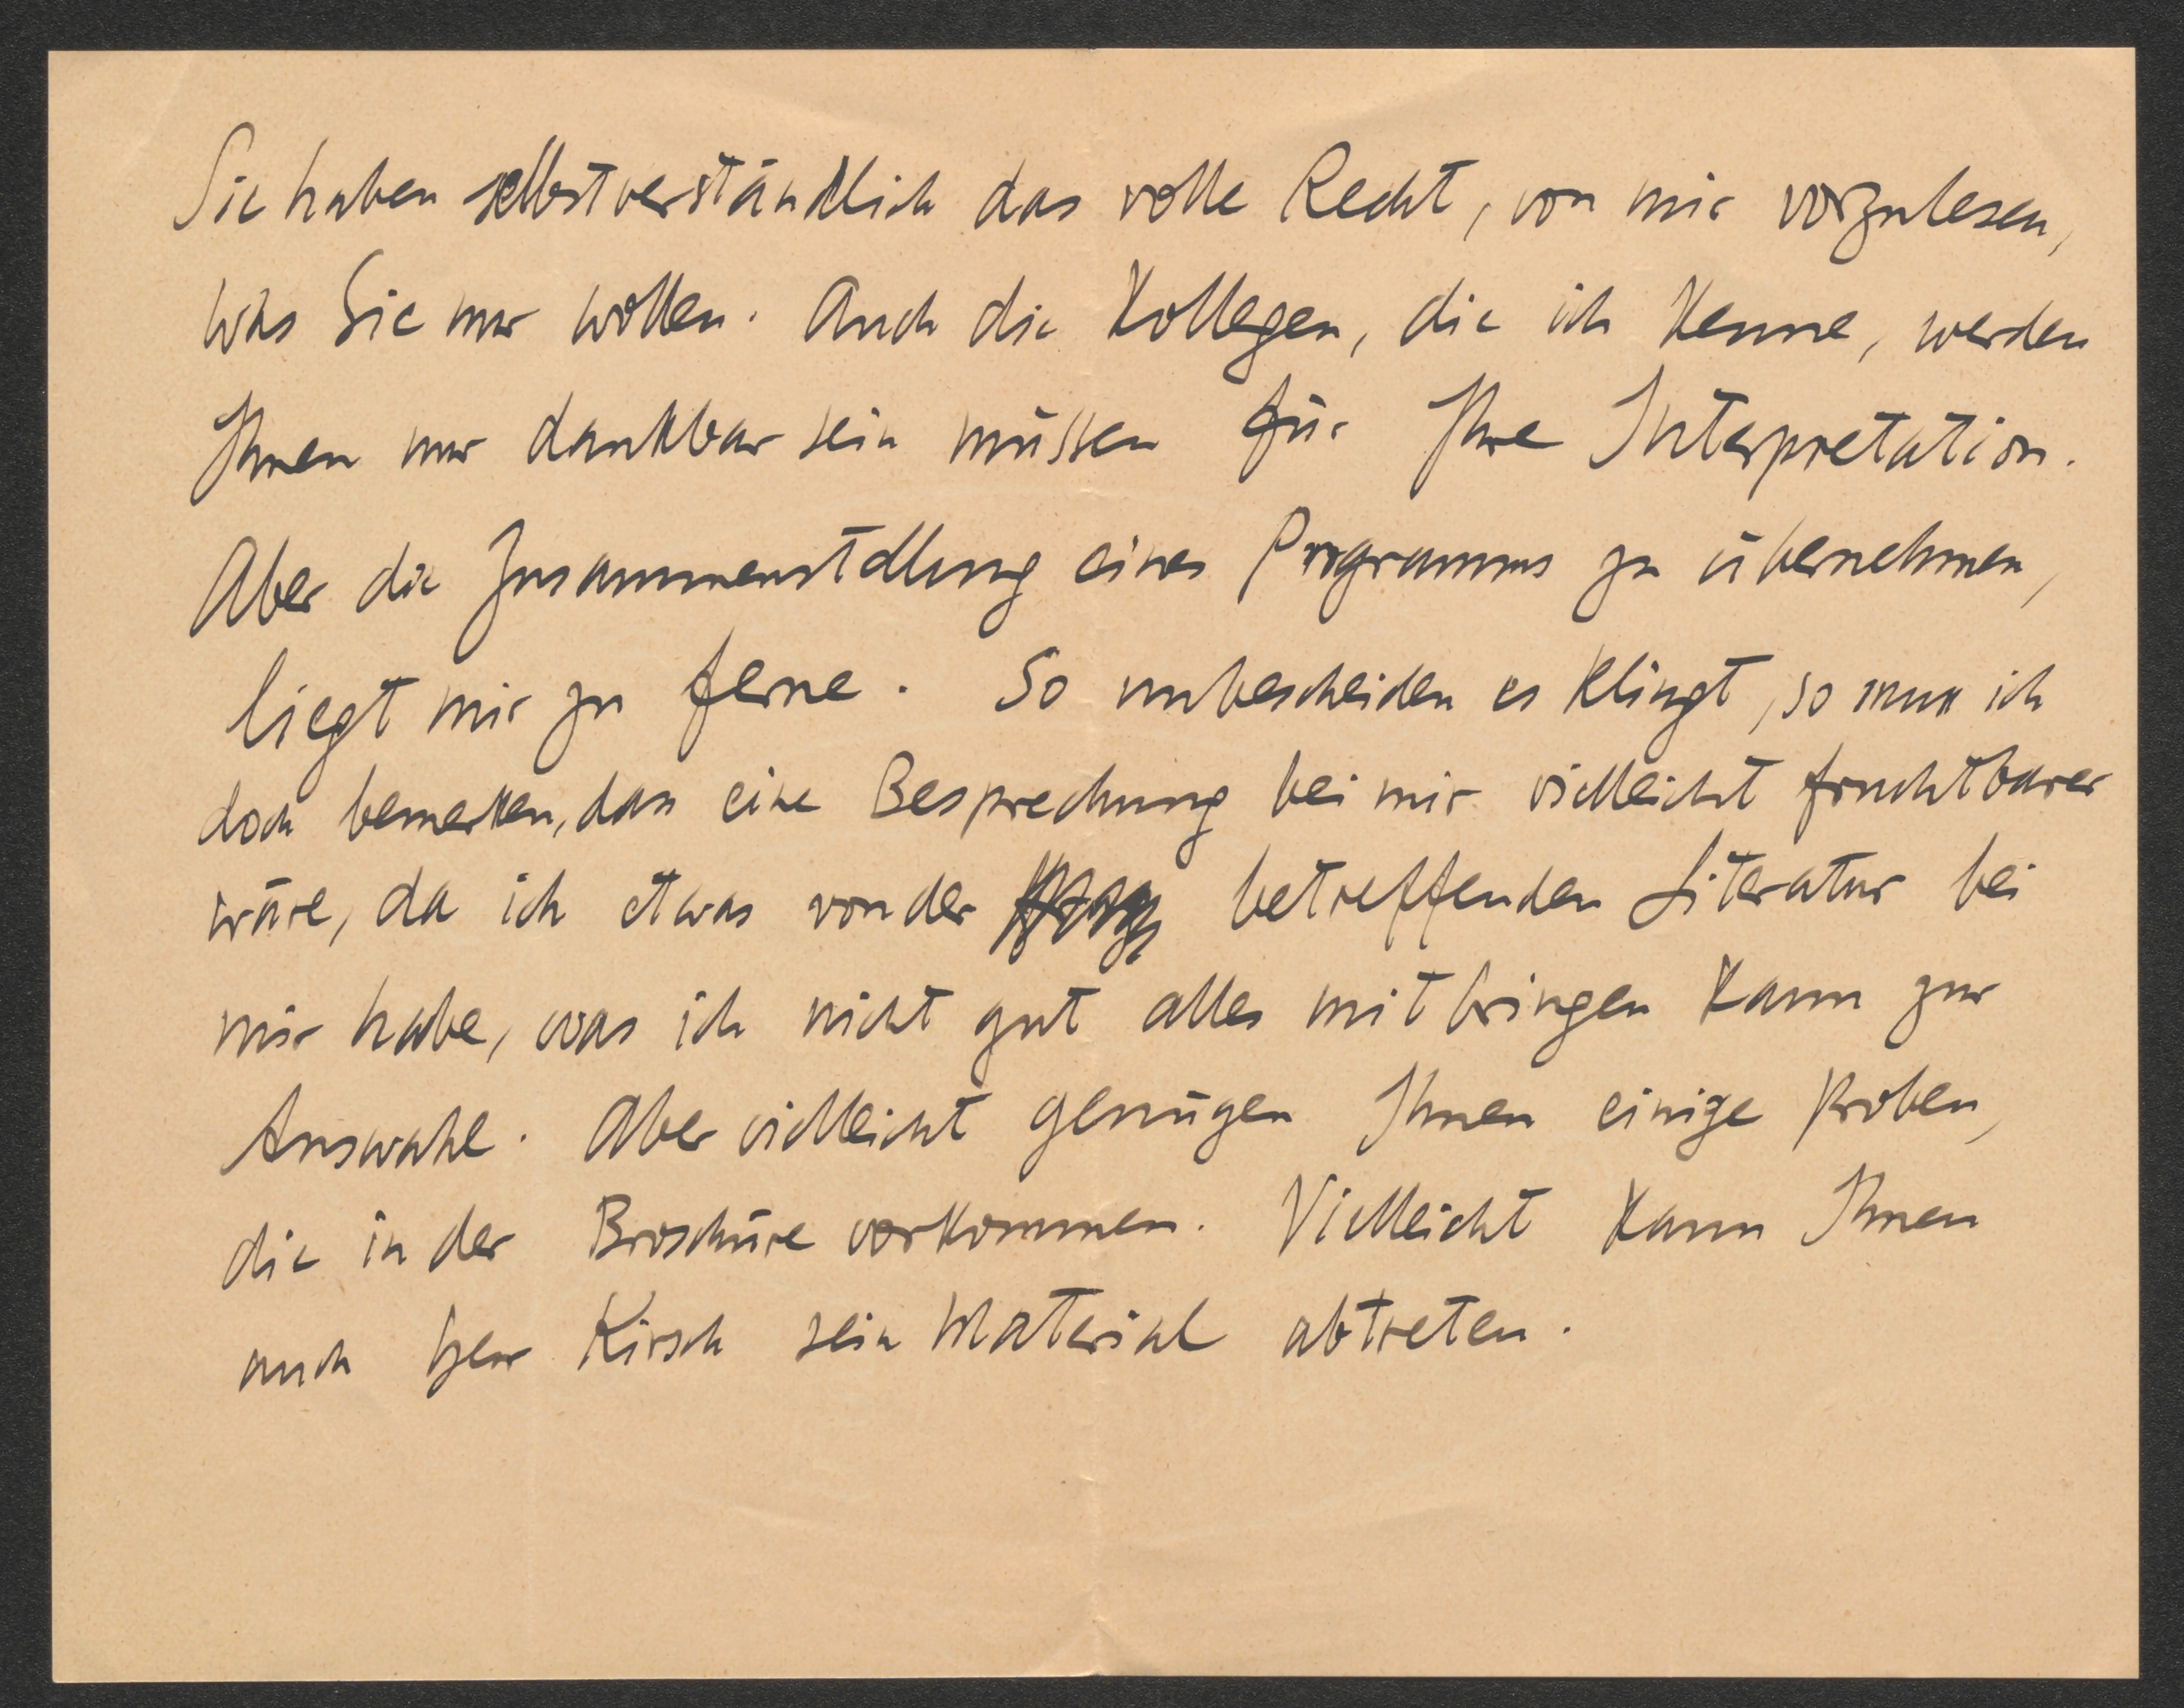 Sie haben selbstverständlich das volle Recht, von mir vorzulesen,
was Sie nur wollen. Auch die Kollegen, die ich kenne, werden
Ihnen nur dankbar sein müssen für Ihre Interpretation.
Aber die Zusammenstellung eines Programms zu übernehmen,
liegt mir zu ferne. So unbescheiden es klingt, so muss ich
doch bemerken, dass eine Besprechung bei mir vielleicht fruchtbarer
wäre, da ich etwas von der betreffenden Literatur bei
mir habe, was ich nicht gut alles mitbringen kann zur
Auswahl. Aber vielleicht genügen Ihnen einige Proben,
die in der Broschüre vorkommen. Vielleicht kann Ihnen
auch Herr Kirsch sein Material abtreten.